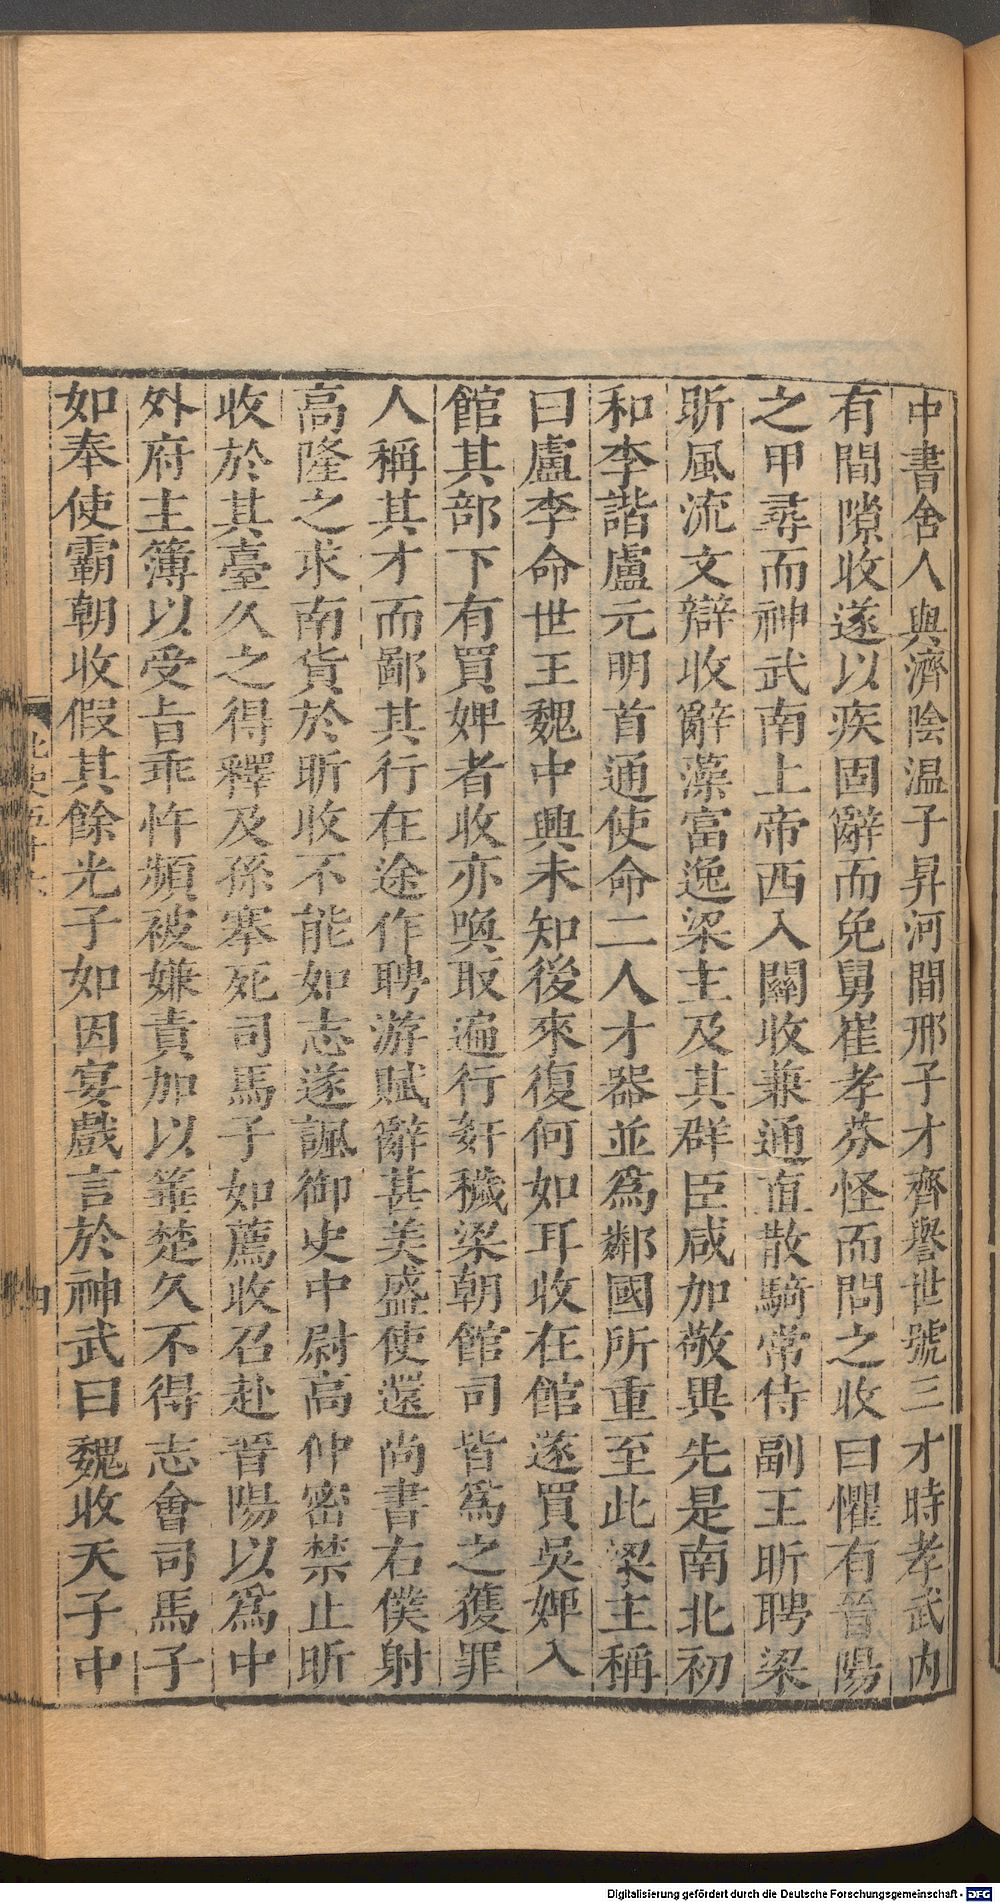 中書舍人與濟陰温子昇河間邢子才齊譽世號三才時孝武内
有間隙收遂以疾固辭而免舅崔孝芬怪而問之收曰懼有晉陽
之甲尋而神武南上帝西入關收兼通直散騎常侍副王昕聘梁
昕風流文辯收辭藻富逸梁主及其群臣咸加敬異先是南北初
和李諧盧元明首通使命二人才器並爲鄰國所重至此梁主稱
曰盧李命世王魏中興未知後來復何如耳收在館遂買吳婢入
館其部下有買婢者收亦喚取遍行姧穢梁朝館司皆爲之獲罪
人稱其才而鄙其行在途作聘游賦辭甚美盛使還尚書右僕射
高隆之求南貨於昕收不能如志遂諷御史中尉高仲密禁止昕
收於其臺久之得釋及孫搴死司馬子如薦收召赴晉陽以爲中
外府主簿以受旨乖忤頻被嫌責加以箠楚久不得志會司馬子
如奉使霸朝收假其餘光子如因宴戲言於神武曰魏收天子中
北史五十六
四
Digitalisierung gefördert durch die Deutsche Forschungsgemeinschaft - DFG